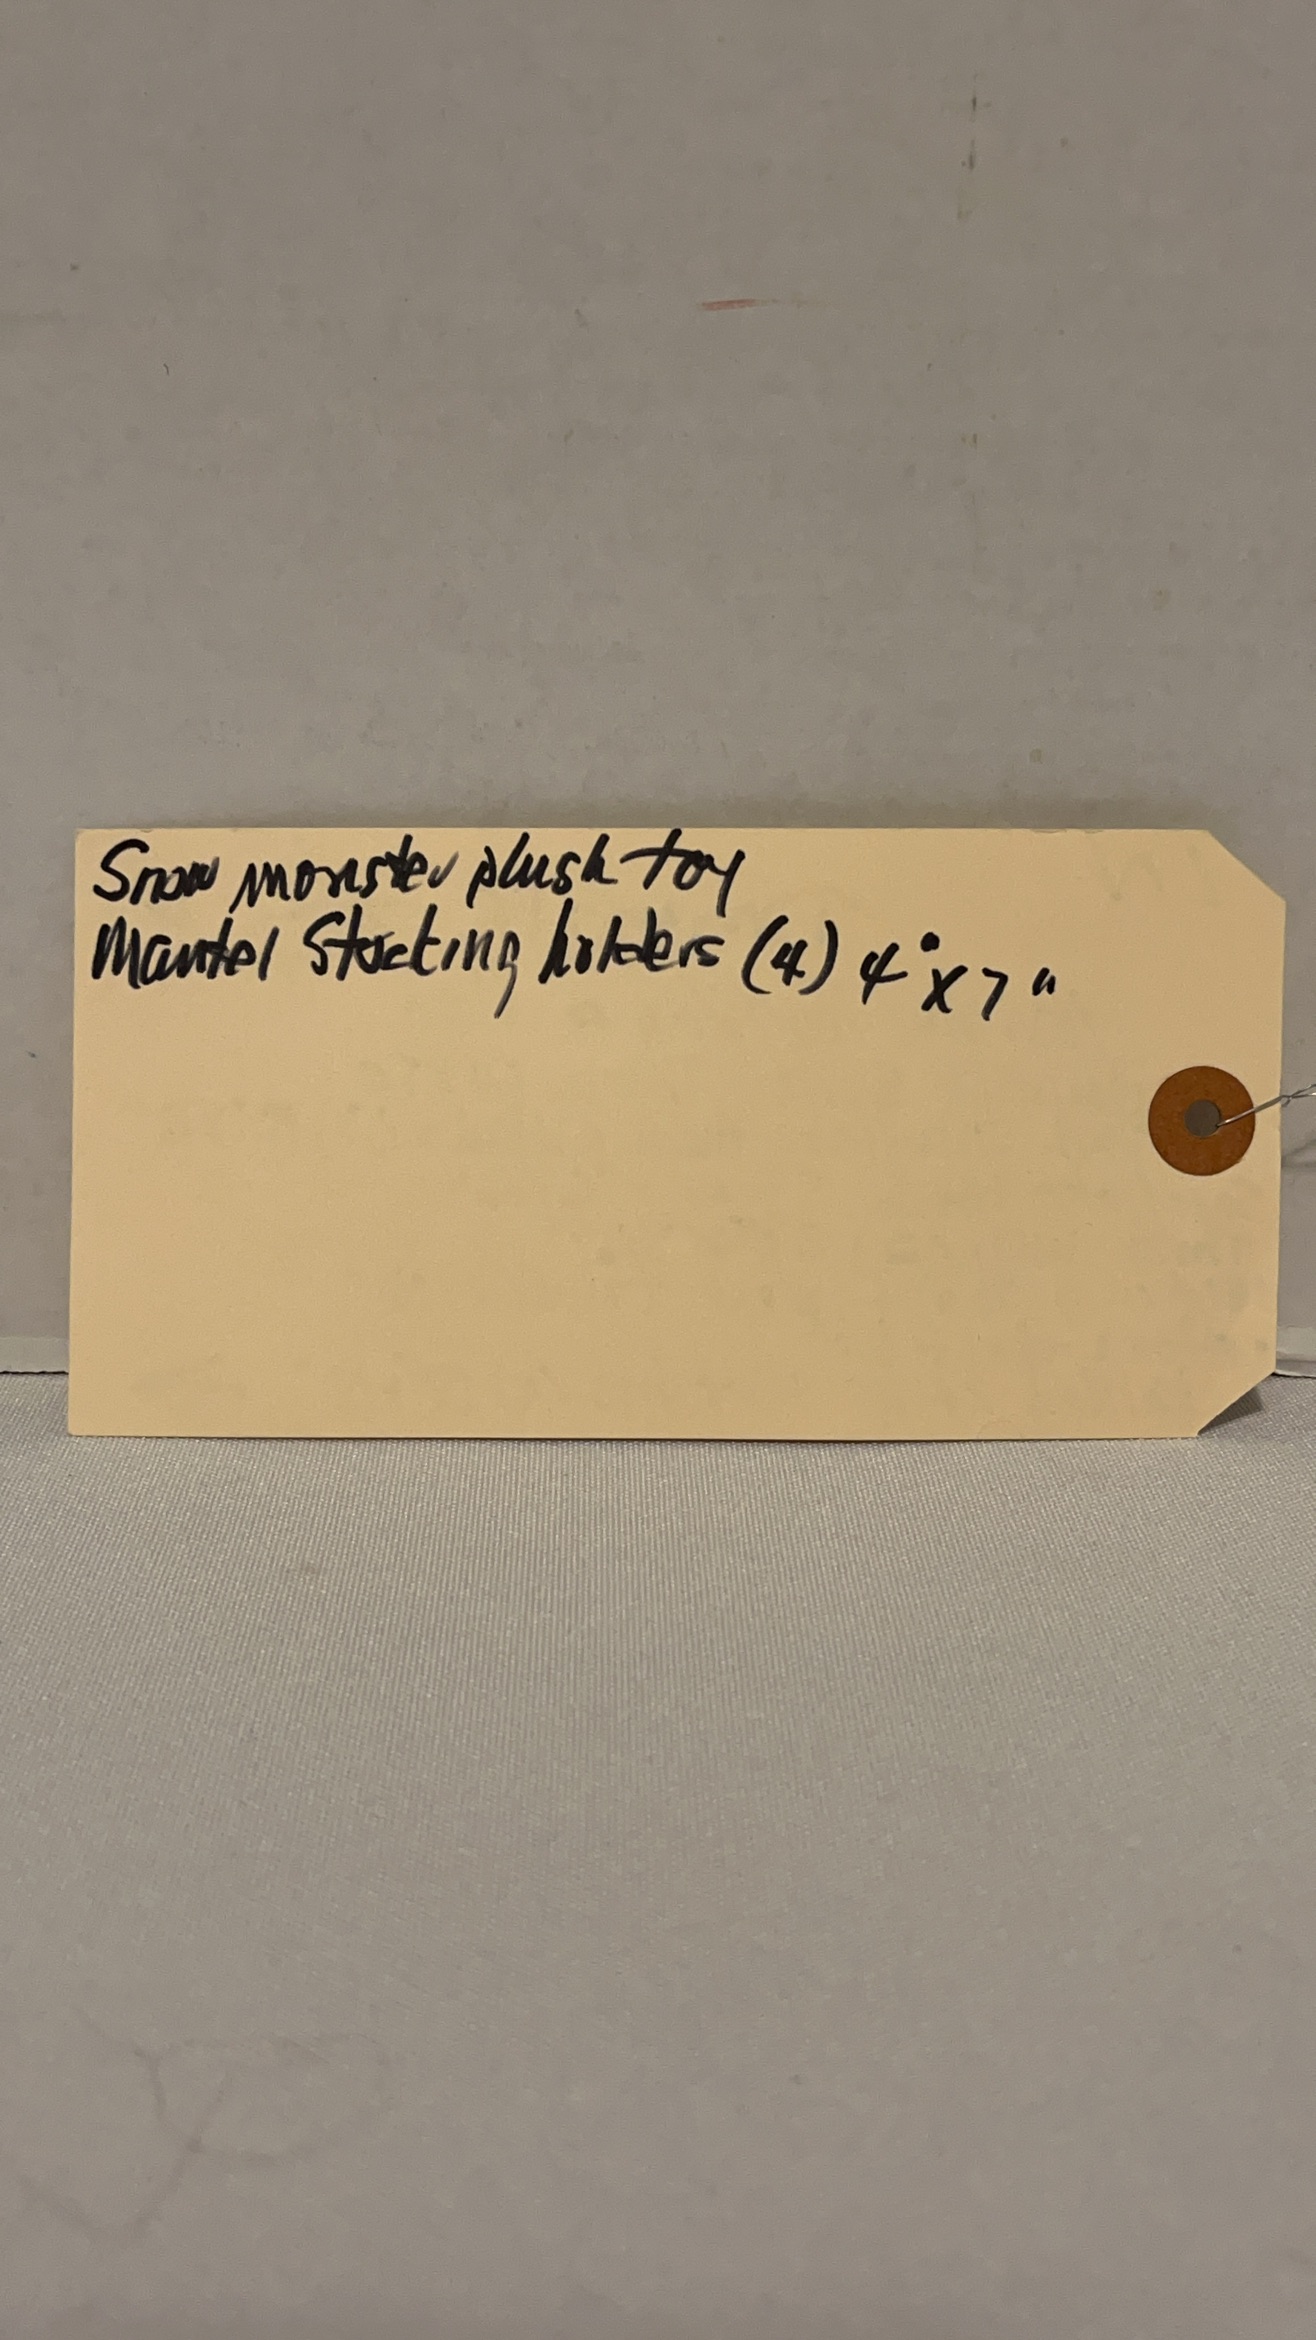 Snow monster plush toy
Mantel Stocking holders (4) 4" x 7"